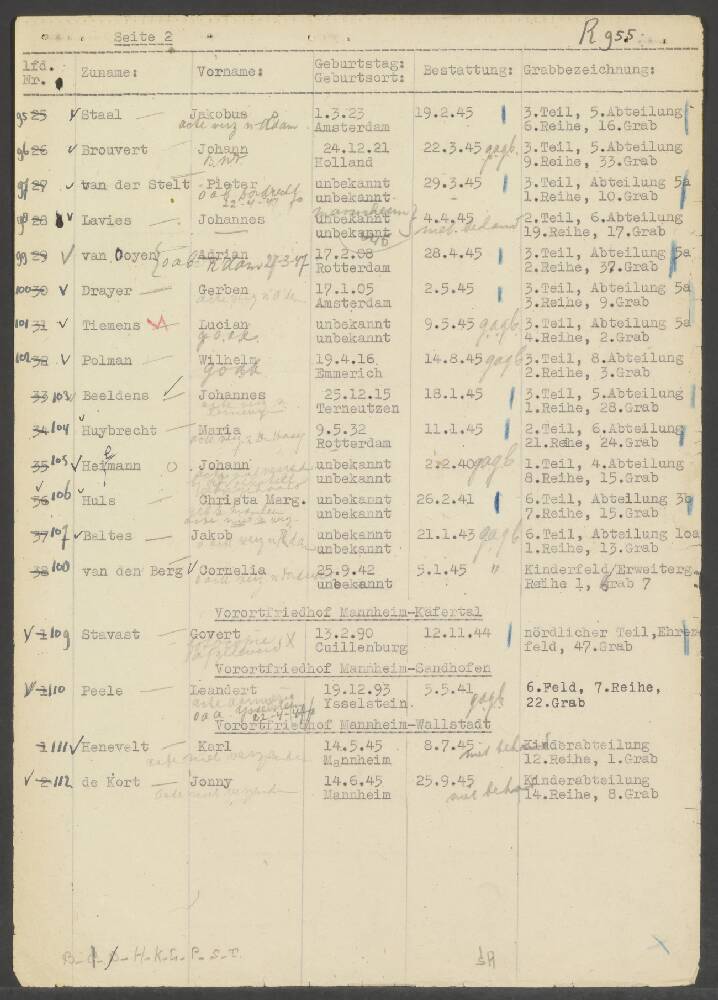 Seite 2
R 955
lfd. Nr. Zuname: Vorname: Geburtstag: Geburtsort: Bestattung: Grabbezeichnung:
95 25 Staal Jakobus 1.3.23 19.2.45 3.Teil, 5.Abteilung
Amsterdam 6.Reihe, 16.Grab
96 26 Brouvert Johann 24.12.21 22.3.45 gagb. 3.Teil, 5.Abteilung
Holland 9.Reihe, 33.Grab
97 27 van der Stelt Pieter unbekannt 29.3.45 3.Teil, Abteilung 5a
22-4-47 unbekannt 1.Reihe, 10.Grab
98 28 Lavies Johannes unbekannt 4.4.45 2.Teil, 6.Abteilung
unbekannt 19.Reihe, 17.Grab
99 29 van Ooyen Adrian 17.2.08 28.4.45 3.Teil, Abteilung 5a
oab R'dam 27-3-47 Rotterdam 2.Reihe, 37.Grab
100 30 Drayer Gerben 17.1.05 2.5.45 3.Teil, Abteilung 5a
Amsterdam 3.Reihe, 9.Grab
101 31 Tiemens Lucian unbekannt 9.5.45 gagb. 3.Teil, Abteilung 5a
unbekannt 4.Reihe, 2.Grab
102 32 Polman Wilhelm 19.4.16 14.8.45 gagb 3.Teil, 8.Abteilung
Emmerich 2.Reihe, 3.Grab
33 103 Beeldens Johannes 25.12.15 18.1.45 3.Teil, 5.Abteilung
Terneutzen 1.Reihe, 28.Grab
34 104 Huybrecht Maria 9.5.32 11.1.45 2.Teil, 6.Abteilung
Rotterdam 21.Reihe, 24.Grab
35 105 Heimann Johann unbekannt 2.2.40 gagb 1.Teil, 4.Abteilung
unbekannt 8.Reihe, 15.Grab
36 106 Huls Christa Marg. unbekannt 26.2.41 6.Teil, Abteilung 3b
unbekannt 7.Reihe, 15.Grab
37 107 Baltes Jakob unbekannt 21.1.43 gagb 6.Teil, Abteilung 10a
unbekannt 1.Reihe, 13.Grab
38 108 van den Berg Cornelia 25.9.42 5.1.45 " Kinderfeld/Erweiterg.
unbekannt Reihe 1, Grab 7
Vorortfriedhof Mannheim-Käfertal
1 109 Stavast Govert 13.2.90 12.11.44 nördlicher Teil,Ehren
Cuillenburg feld, 47.Grab
Vorortfriedhof Mannheim-Sandhofen
1 110 Peele Leandert 19.12.93 5.5.41 gagb 6.Feld, 7.Reihe,
Ysselstein 22.Grab
Vorortfriedhof Mannheim-Wallstadt
1 111 Henevelt Karl 14.5.45 8.7.45 Kinderabteilung
Mannheim 12.Reihe, 1.Grab
2 112 de Kort Jonny 14.6.45 25.9.45 Kinderabteilung
Mannheim 14.Reihe, 8.Grab